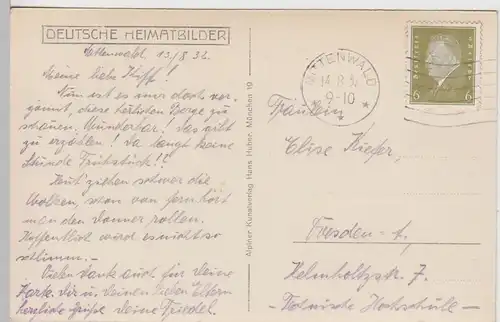 DEUTSCHE HEIMATBILDER
Mittenwald 13/8 32.
Meine liebe
Nun ist es mir doch ver-
gönnt, diese herrlichen Berge zu
schauen. Wunderbar! Das gibt
zu erzählen! Da langt keine
Stunde Frühstück!!
Heut' ziehen schwer die
Wolken, schon von fern hört
man den Donner rollen.
Hoffentlich wird es nicht so
schlimm. –
Vielen Dank auch für Deine
Karte. Dir u. Deinen lieben Eltern
herzliche Grüße Deine Friedel.
Alpiner Kunstverlag Hans Huber, München 19
MITTENWALD
14 8 32
9-10
6 6
Fräulein
Elise Kiefer,
Dresden-A,
Helmholtzstr. 7.
– Technische Hochschule –